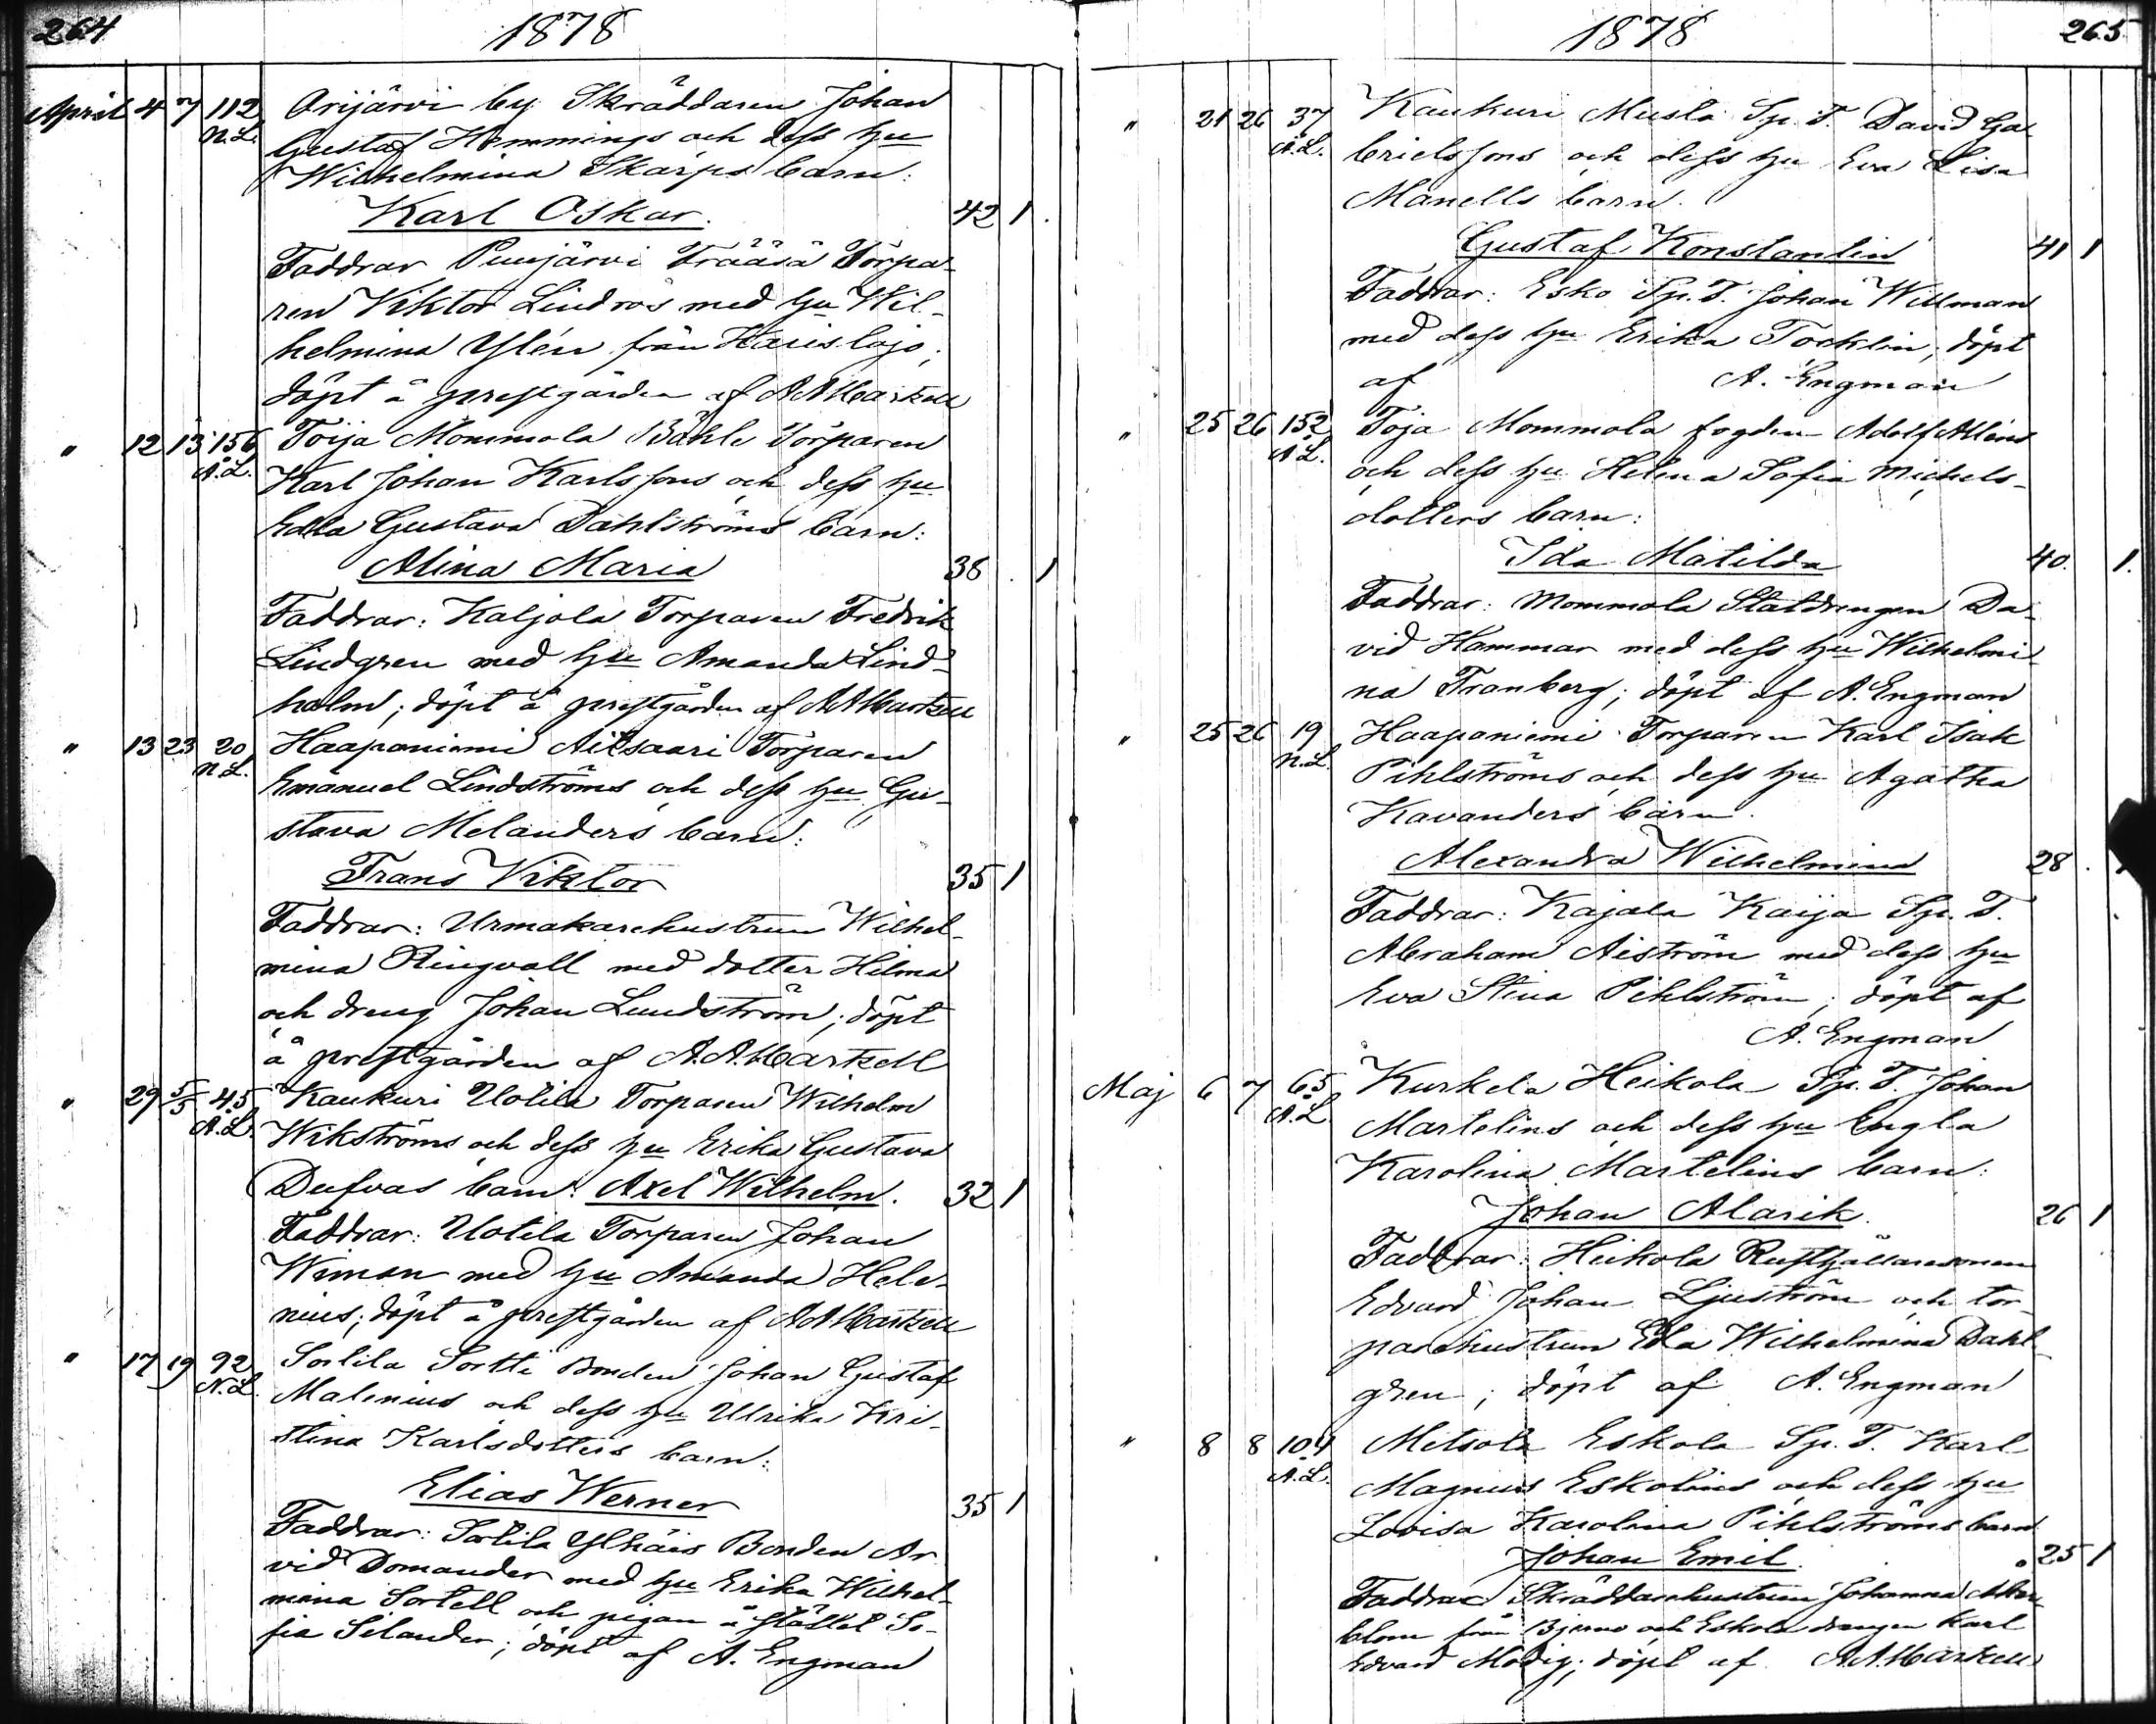 264
1878
April 4 7 112 Arijärvi by Skräddaren Johan
N.L. Gustaf Hemmings och dess hu
Wilhelmina Skarps barn:
Karl Oskar. 42 1.
Faddrar Punjärvi Träåsä Torpa-
ren Viktor Lindros med hu Wil-
helmina Ylén från Karislojo;
döpt å prestgården af AAMartzell
" 12 13 156 Toija Mommola Bähle Torparen
A.L. Karl Johan Karlssons och dess hu
Edla Gustava Dahlströms barn:
Alina Maria 38 . 1
Faddrar: Kaljola Torparen Fredrik
Lindgren med hu Amanda Lind-
holm; döpt å prestgården af AAMartzell
" 13 23 20 Haapaniemi Aitsaari Torparen
N.L. Emanuel Lindströms och dess hu Gu-
stava Melanders barn:
Frans Viktor 35 1
Faddrar: Urmakarehustrun Wilhel-
mina Ringvall med dotter Hilma
och dreng Johan Lundström; döpt
å prestgården af A.A.Martzell
" 29 5/5 45 Kaukuri Uotila Torparen Wilhelm
A.L. Wikströms och dess hu Erika Gustava
Dufvas barn: Axel Wilhelm. 32 1
Faddrar: Uotila Torparen Johan
Wiman med hu Amanda Hele-
nius; döpt å prestgården af AAMartzell
" 17 19 92 Sorlila Sortti Bonden Johan Gustaf
N.L. Malenius och dess hu Ulrika Kri-
stina Karlsdotters barn:
Elias Werner 35 1
Faddrar: Sorlila Ylhäis Bonden Ar
vid Domander med hu Erika Wilhel-
mina Sortell och pigan å stället So-
fia Selander; döpt af A. Engman
1878
265
" 21 26 37 Kaukuri Musla Sp. T. David Ga-
A.L. brielssons och dess hu Eva Lisa
Manells barn.
Gustaf Konstantin 41 1
Faddrar: Esko Sp. T. Johan Willman
med dess hu Erika Tocklin, döpt
af A. Engman
" 25 26 152 Toja Mommola fogden Adolf Aléns
A.L. och dess hu Helena Sofia Michels-
dotters barn:
Ida Matilda 40. 1.
Faddrar: Mommola Statdrengen Da-
vid Hammar med dess hu Wilhelmi-
na Tranberg; döpt af A. Engman
" 25 26 19 Haapaniemi Torparen Karl Isak
N.L. Pihlströms och dess hu Agatha
Kavanders barn.
Alexandra Wilhelmina 28 . 1
Faddrar: Kajala Kaija Sp. T.
Abraham Aiström med dess hu
Eva Stina Pihlström; döpt af
A. Engman
Maj 6 7 65 Kurkela Heikola Sp. T. Johan
A.L. Martelins och dess hu Engla
Karolina Martelins barn:
Johan Alarik. 26 1
Faddrar: Heikola Rusthållaresonen
Edvard Johan Ljuström och tor-
parehustrun Eda Wilhelmina Dahl-
gren; döpt af A. Engman
" 8 8 104 Metsola Eskola Sp. T. Karl
A.L. Magnus Eskolins och dess hu
Lovisa Karolina Pihlströms barn
Johan Emil. 25 1
Faddrar: Skräddarehustrun Johanna
blom från Bjerno och Eskola drengen Karl
Edvard Modig; döpt af A.A.Martzell